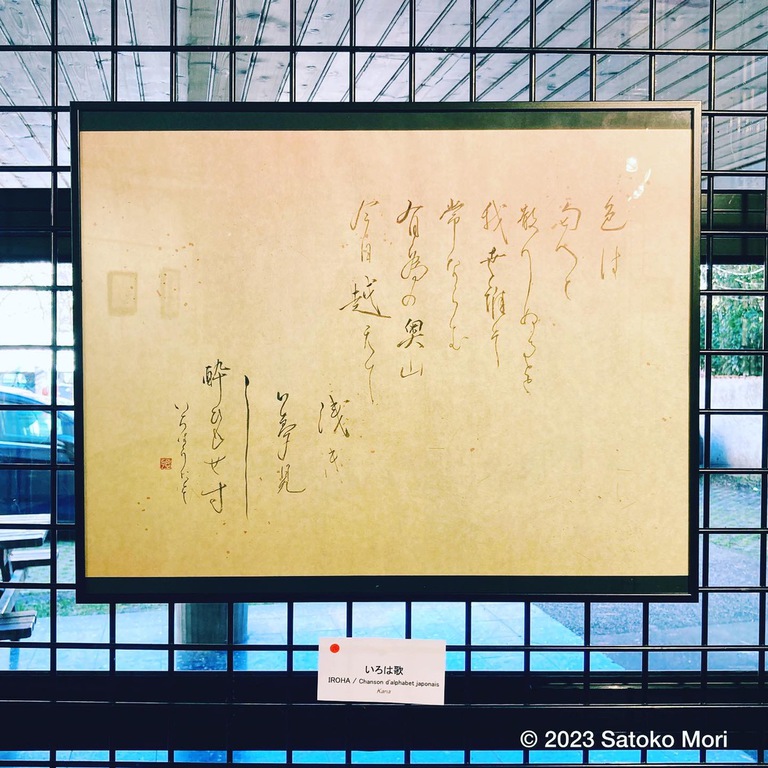 色は
匂へと
散りぬるを
我世誰そ
常ならむ
有為の奥山
今日越えて
浅き
夢見
し
酔ひもせ寸
いろは歌
IROHA / Chanson d'alphabet japonais
Kana
© 2023 Satoko Mori